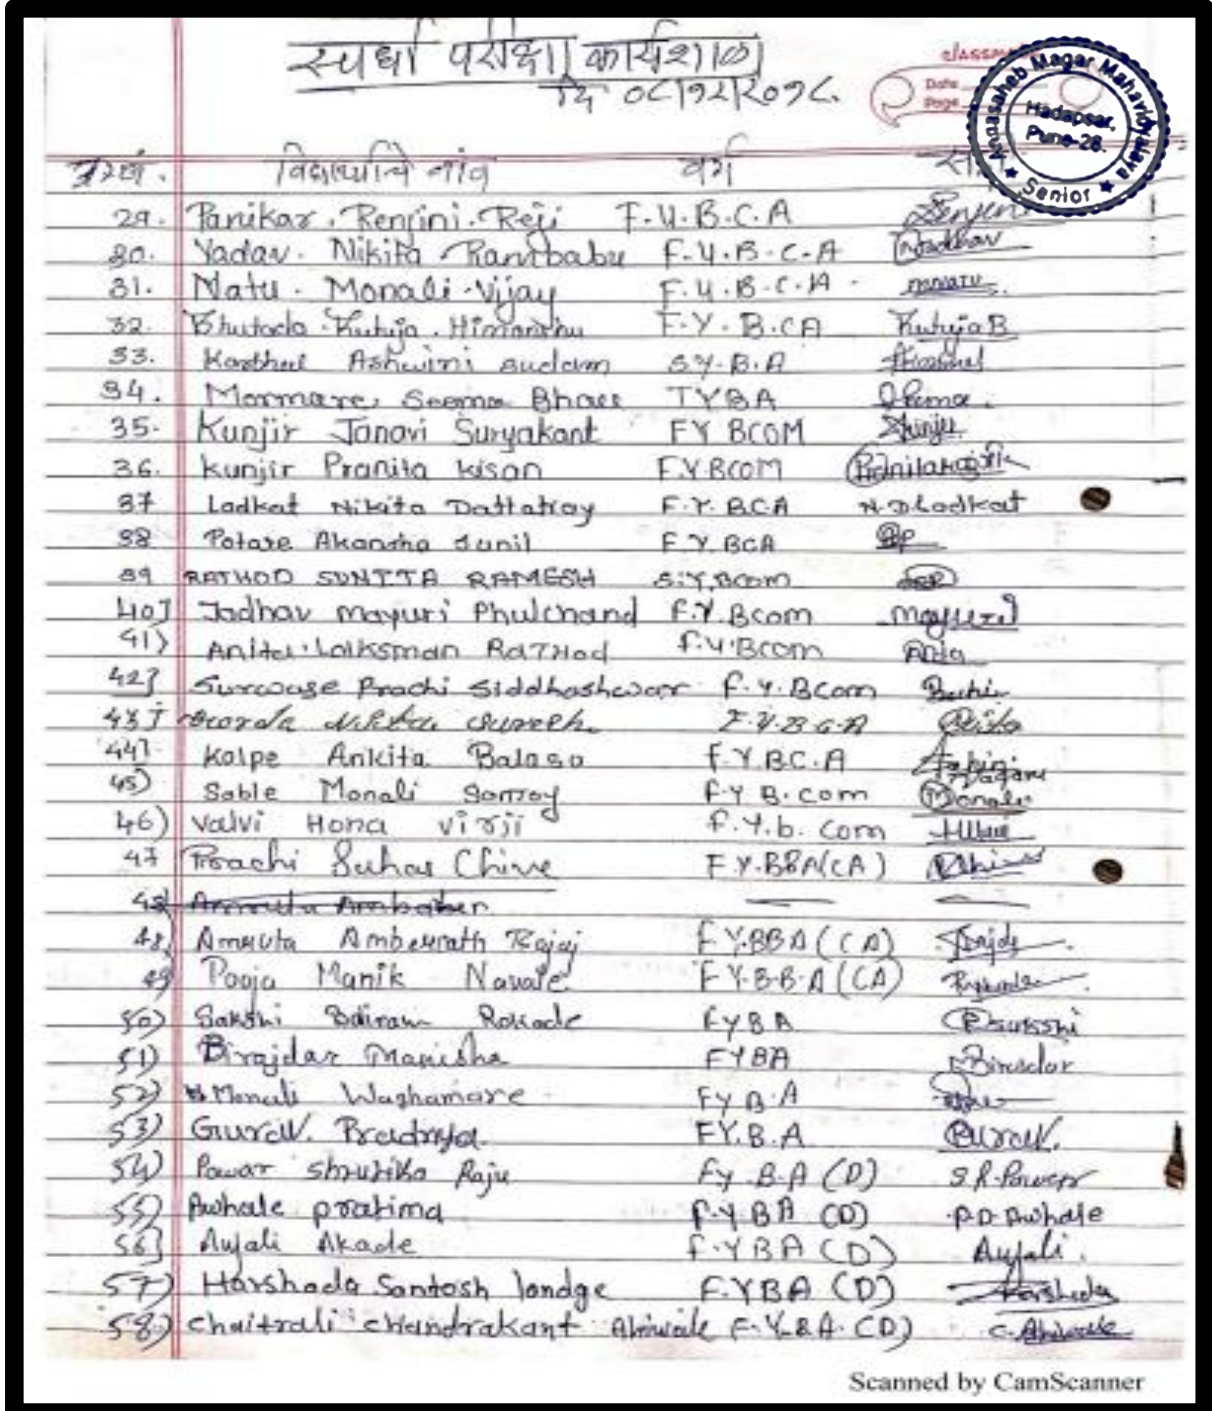 स्पर्धा परीक्षा कार्यशाळा
दि ०८/१२/२०१८.
classmate
Date
Page
Annasaheb Magar Mahavidyalaya
Hadapsar,
Pune-28.
★ Senior ★
अ.क्रं. विद्यार्थ्याचे नांव वर्ग
29. Panikar. Renjini. Reji F.Y.B.C.A
30. Yadav. Nikita Rambabu F.Y.B.C.A
31. Natu. Monali.Vijay F.Y.B.C.A.
32. Bhutada.Rutuja.Himanshu F.Y.B.CA RutujaB
33. Ashwini Sudam S.Y.B.A
34. Mormare Seema Bhau TYBA
35. Kunjir Janavi Suryakant FY BCOM
36. Kunjir Pranita kisan F.Y.BCOM
37 Ladkat Nikita Dattatray F.Y. BCA N.D.Ladkat
38 Potare Akansha Sunil F.Y. BCA
39 RATHOD SUNITA RAMESH S.Y.Bcom
40] Jadhav mayuri Phulchand F.Y.Bcom
41) Anita.Laiksman RaTHod F.Y.Bcom
42] Surwase Prachi Siddhashwar F.Y.Bcom
43] Nikita Suresh F.Y.B.C.A
44]. Kolpe Ankita Balasa F.Y.BC.A
45) Sable Monali Sanjay F.Y B.com Monali
46) valvi Hona virji F.Y.b. Com
47 Prachi Suhas Chive F.Y.BBA(CA)
48) Amruta
48) Amruta Ambernath Bajaj FY.BBA (CA)
49) Pooja Manik Navale FY.B.B.A (CA)
50) Sakshi Rokade FYBA
51) Birajdar Manisha FYBA
52) Monali Waghamare FY B.A
53) Gurav. Pradnya FY.B.A Gurav.
54) Pawar Shrutika Raju Fy.B.A (D) S.R.Pawar
55) Awhale pratima F.Y.BA (D) P.D.Awhale
56] Anjali Akade F.YBA (D) Anjali.
57) Harshada Santosh londge F.YBA (D) Harshada
58) Chaitrali chandrakant Ahiwale F.Y.BA.(D) C.Ahiwale
Scanned by CamScanner